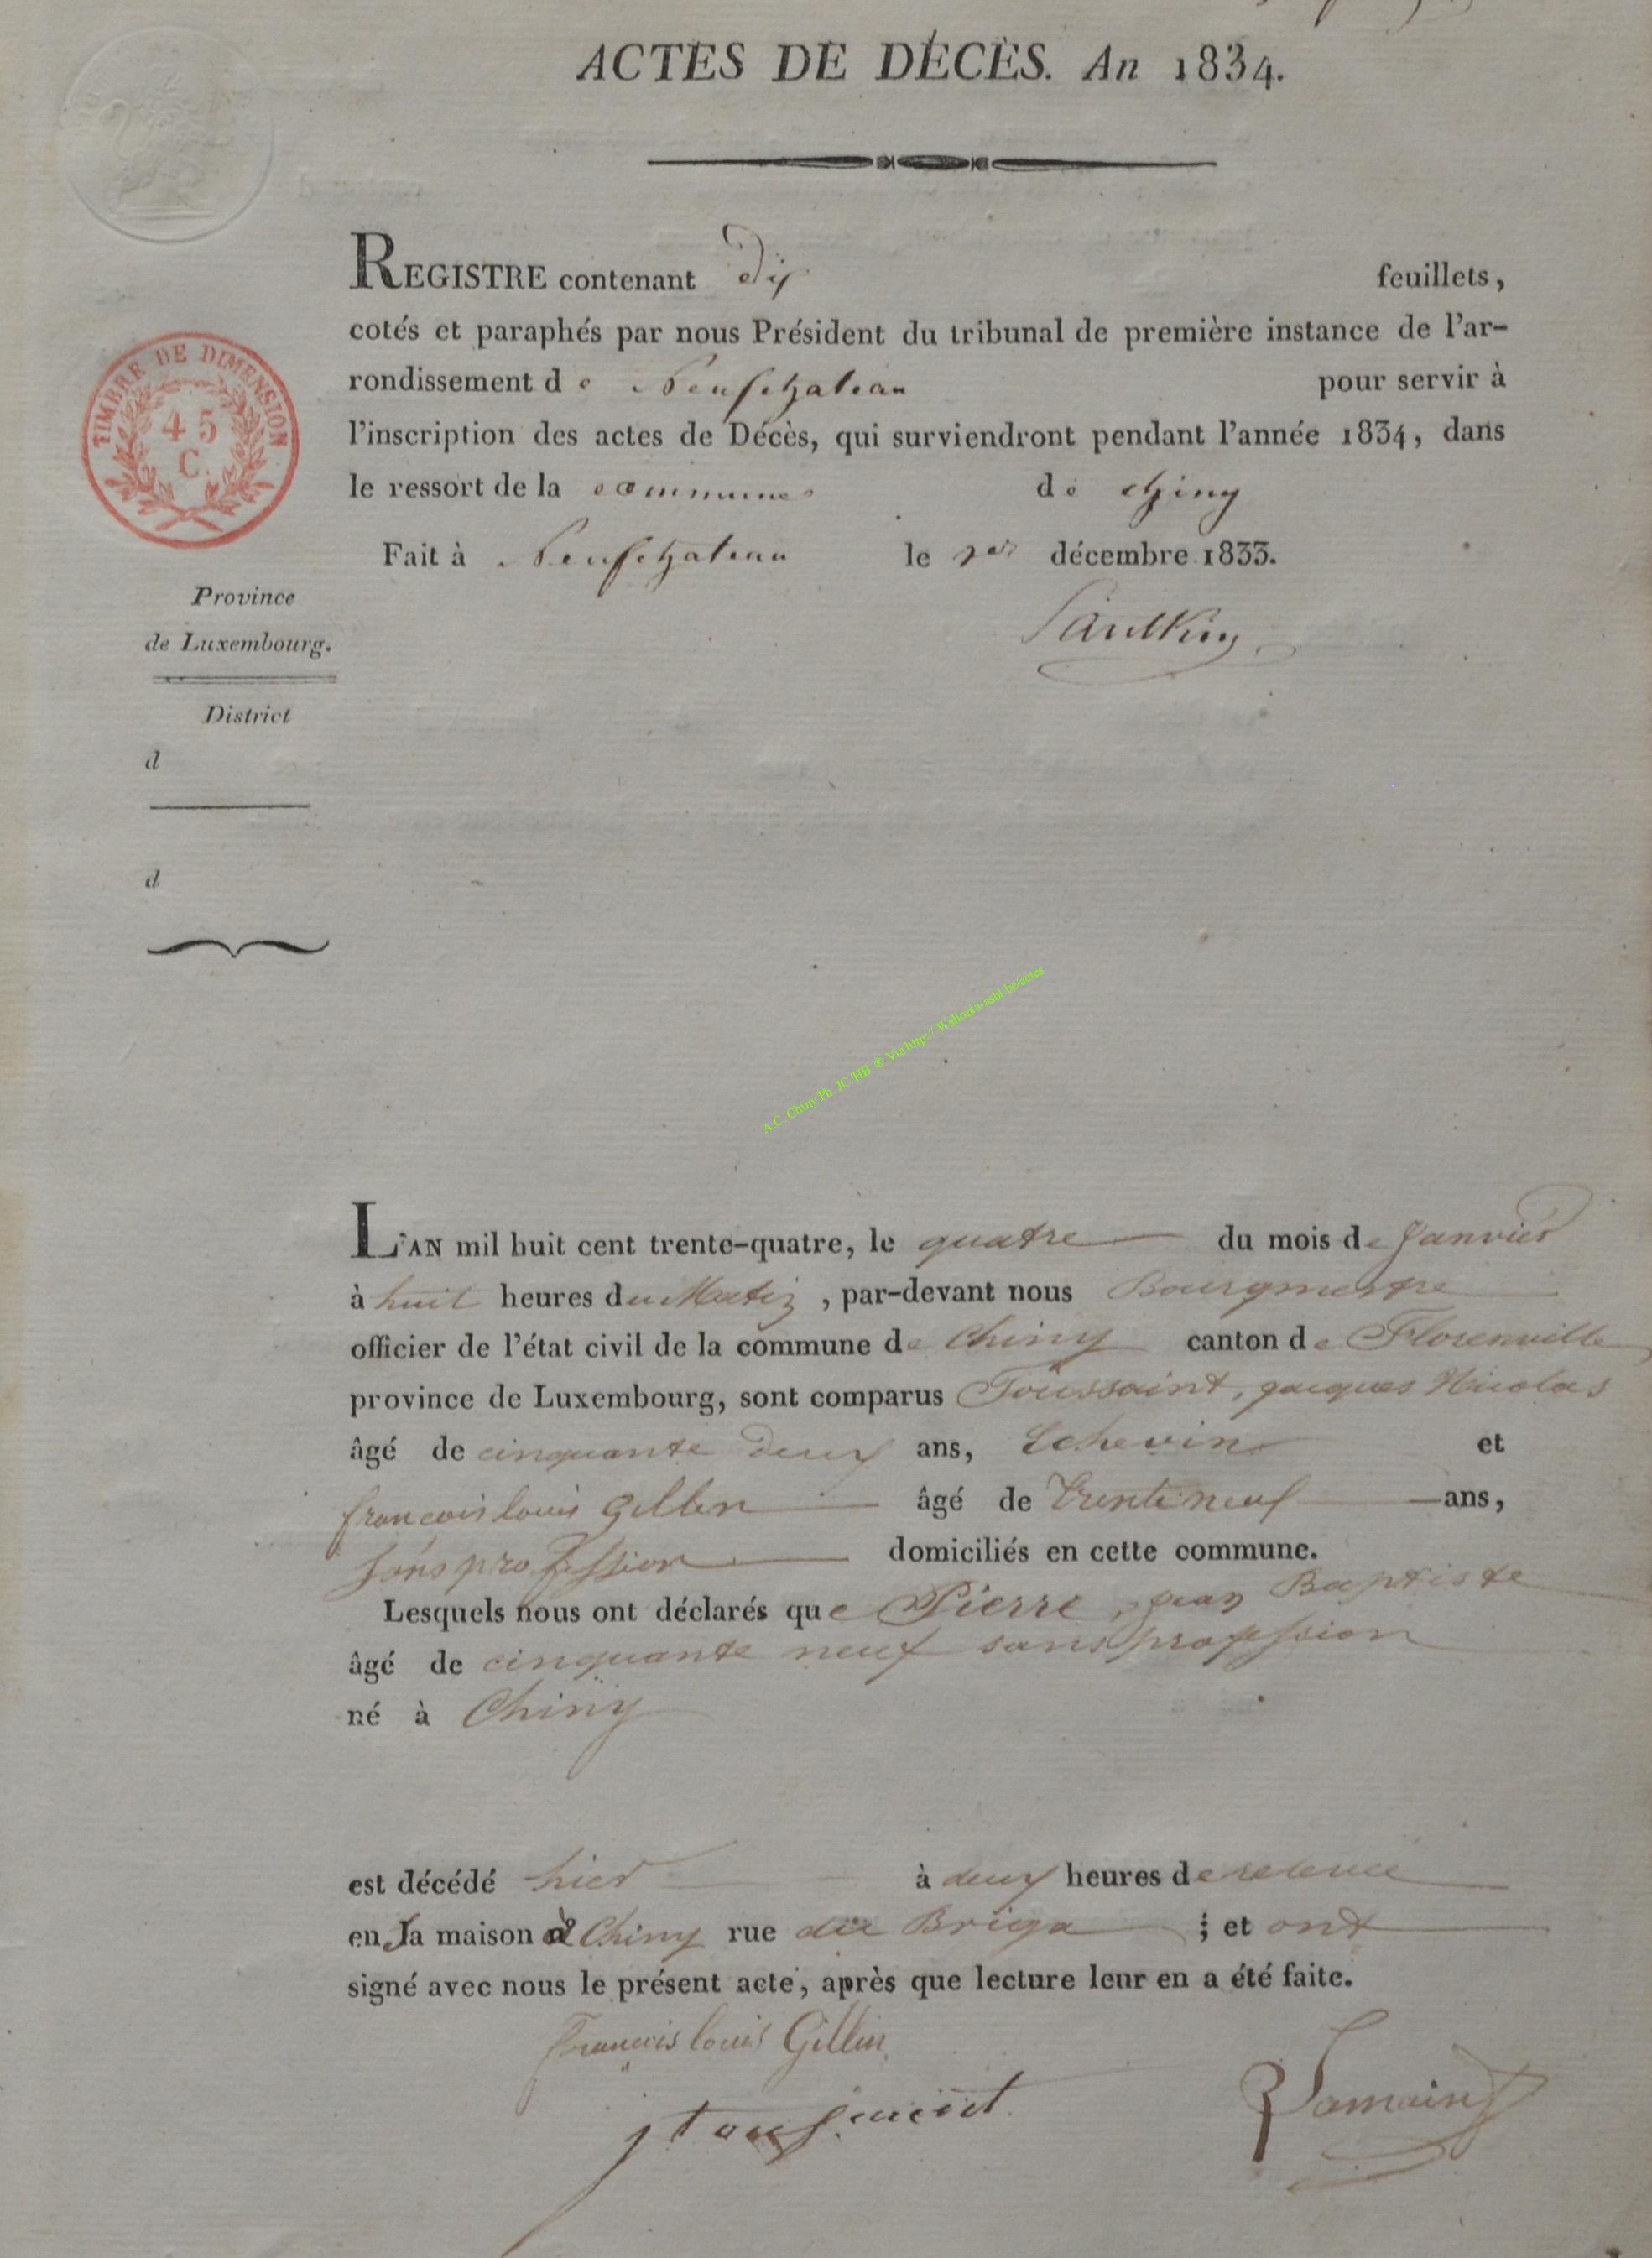 ACTES DE DÉCÈS. An 1834.
REGISTRE contenant dix feuillets,
cotés et paraphés par nous Président du tribunal de première instance de l'ar-
rondissement de Neufchateau pour servir à
l'inscription des actes de Décès, qui surviendront pendant l'année 1834, dans
le ressort de la commune de chiny
Fait à Neufchateau le 1er décembre 1833.
TIMBRE DE DIMENSION
45
C.
Province
de Luxembourg.
District
d
d
A.C. Chiny Ph. JC/HB © Via http:// Wallonia-asbl.be/actes
L'AN mil huit cent trente-quatre, le quatre du mois de Janvier
à huit heures du Matin, par-devant nous Bourgmestre
officier de l'état civil de la commune de Chiny canton de Florenville
province de Luxembourg, sont comparus Toussaint, jacques Nicolas
âgé de cinquante deux ans, Echevin et
francois louis Gillin âgé de trente neuf ans,
sans profession domiciliés en cette commune.
Lesquels nous ont déclarés que Pierre, jean Baptiste
âgé de cinquante neuf sans profession
né à Chiny
est décédé hier à deux heures de relevée
en sa maison à Chiny rue du ; et ont
signé avec nous le présent acte, après que lecture leur en a été faite.
francois louis Gillin